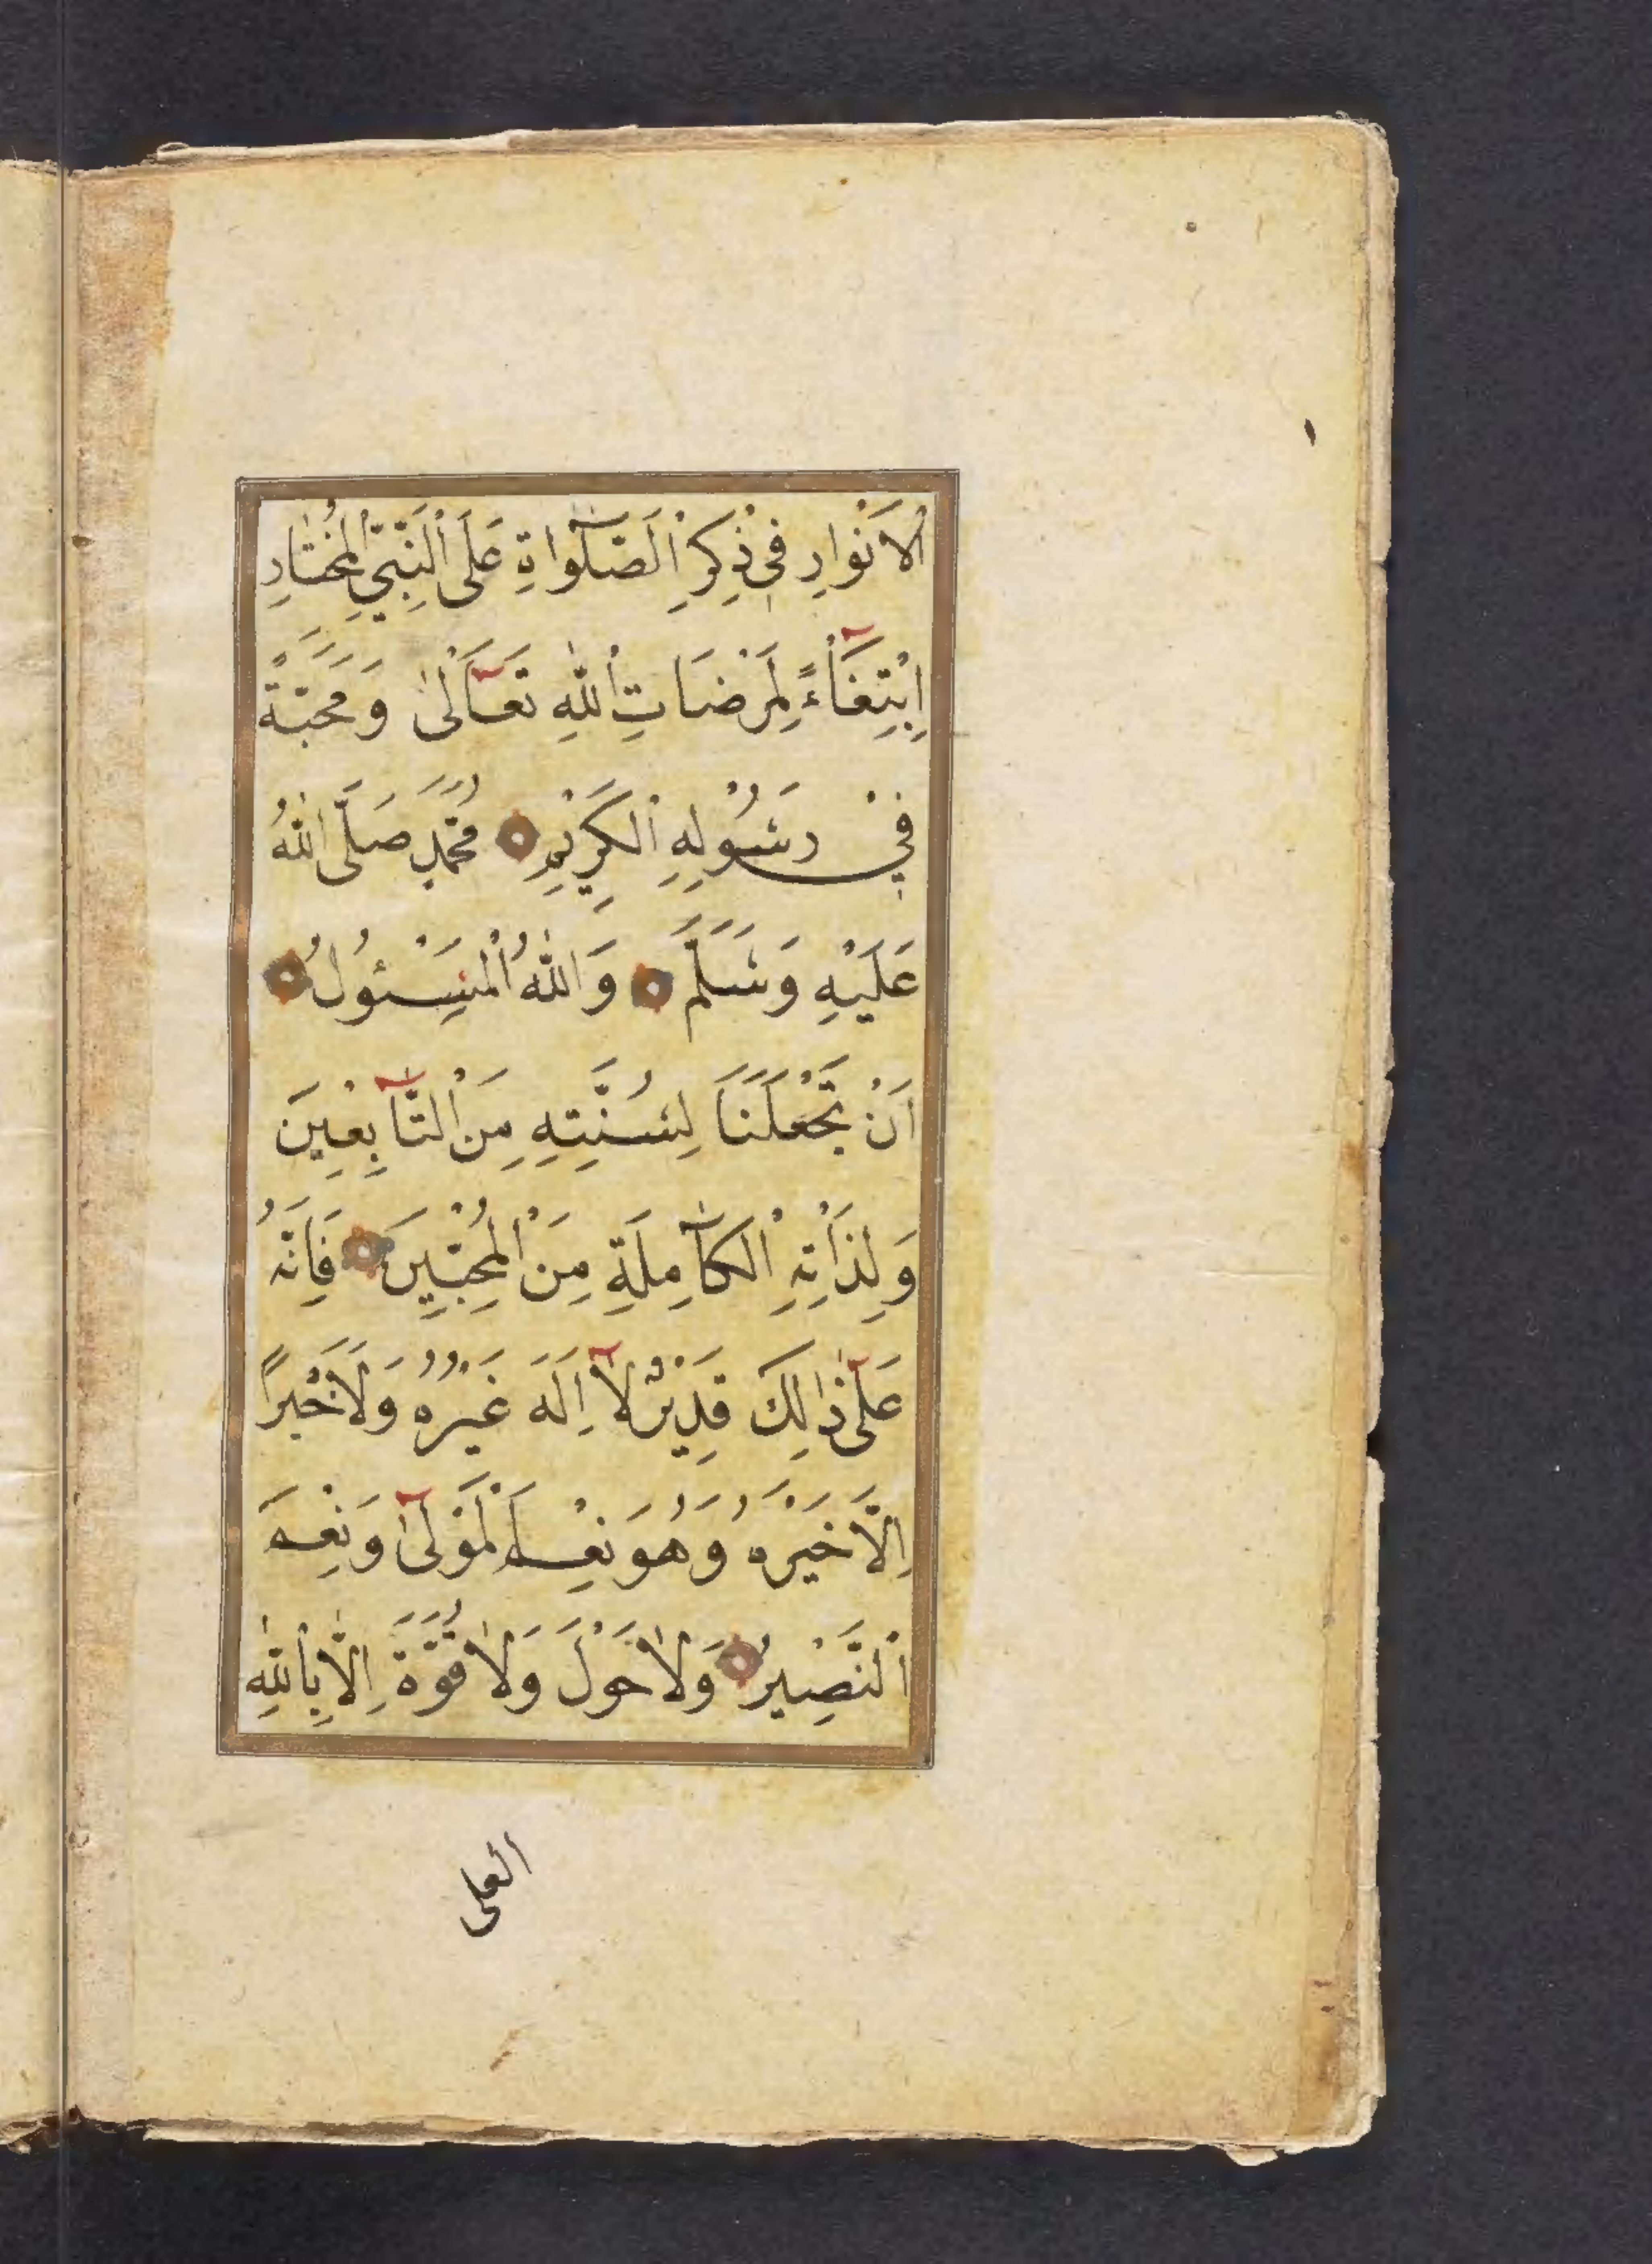 ١
الْاَنْوَارِ فِي ذِكْرِ الصَّلٰوَاةِ عَلَى النَّبِيِّ الْمُخْتَارِ
اِبْتِغَآءً لِمَرْضَاتِ اللّٰهِ تَعَالٰى وَمَحَبَّةً
فِيْ رَسُوْلِهِ الْكَرِيْمِ مُحَمَّدٍ صَلَّى اللّٰهُ
عَلَيْهِ وَسَلَّمَ وَاللّٰهُ الْمَسْئُولُ
اَنْ يَجْعَلَنَا لِسُنَّتِهِ مِنَ التَّابِعِينَ
وَلِذَاتِهِ الْكَامِلَةِ مِنَ الْمُحِبِّينَ فَاِنَّهُ
عَلٰى ذَالِكَ قَدِيْرٌ لَآ اِلَهَ غَيْرُهُ وَلَا خَيْرًا
اِلَّا خَيْرُهُ وَهُوَ نِعْمَ الْمَوْلٰى وَنِعْمَ
النَّصِيرُ وَلَا حَوْلَ وَلَا قُوَّةَ اِلَّا بِاللّٰهِ
العلى